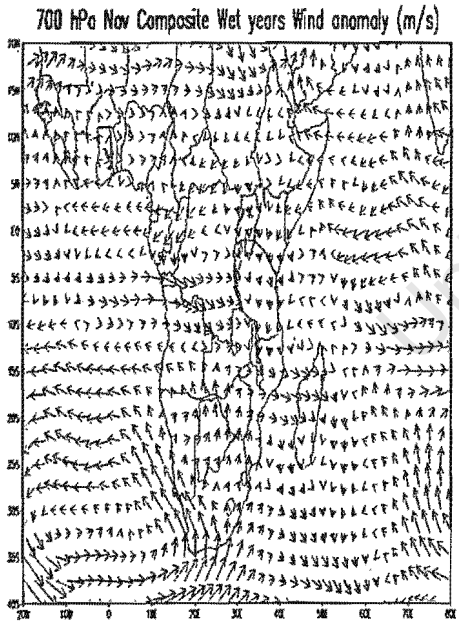 700 hPa Nov Composite Wet years Wind anomaly (m/s)
20N
15N
10N
5N
EQ
5S
10S
15S
20S
25S
30S
35S
40S
20W 10W 0 10E 20E 30E 40E 50E 60E 70E 80E